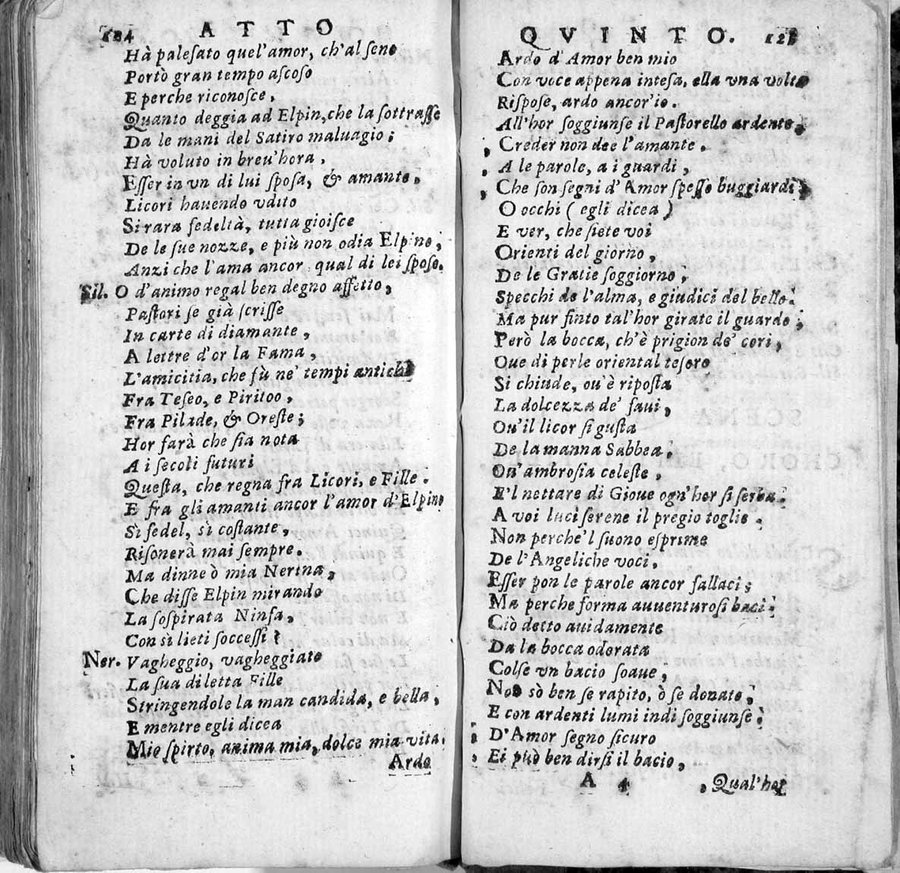 124 ATTO
Hà palesato quel'amor, ch'al seno
Portò gran tempo ascoso
E perche riconosce,
Quanto deggia ad Elpin, che la sottrasse
Da le mani del Satiro maluagio;
Hà voluto in breu'hora,
Esser in vn di lui sposa, & amante.
Licori hauendo vdito
Sì rara fedeltà, tutta gioisce
De le sue nozze, e più non odia Elpino,
Anzi che l'ama ancor qual di lei sposo.
Sil. O d'animo regal ben degno affetto,
Pastori se già scrisse
In carte di diamante,
A lettre d'or la Fama,
L'amicitia, che fù ne' tempi antichi
Fra Teseo, e Piritoo,
Fra Pilade, & Oreste;
Hor farà che sia nota
A i secoli futuri
Questa, che regna fra Licori, e Fille.
E fra gli amanti ancor l'amor d'Elpino
Sì fedel, sì costante,
Risonerà mai sempre.
Ma dinne ò mia Nerina,
Che disse Elpin mirando
La sospirata Ninfa,
Con sì lieti soccessi?
Ner. Vagheggio, vagheggiato
La sua diletta Fille
Stringendole la man candida, e bella,
E mentre egli dicea
Mio spirto, anima mia, dolce mia vita.
Ardo
QVINTO. 125
Ardo d'Amor ben mio
Con voce appena intesa, ella vna volta
Rispose, ardo ancor'io.
All'hor soggiunse il Pastorello ardente,
, Creder non dee l'amante.
, A le parole, a i guardi,
, Che son segni d'Amor spesso buggiardi;
O occhi (egli dicea)
E ver, che siete voi
Orienti del giorno,
De le Gratie soggiorno,
Specchi de l'alma, e giudici del bello.
Ma pur finto tal'hor girate il guardo;
Però la bocca, ch'è prigion de' cori,
Oue di perle oriental tesoro
Si chiude, ou'è riposta
La dolcezza de' faui,
Ou'il licor si gusta
De la manna Sabbea,
On'ambrosia celeste,
E'l nettare di Gioue ogn'hor si serba.
A voi luci serene il pregio toglie.
Non perche'l suono esprime
De l'Angeliche voci,
Esser pon le parole ancor fallaci;
Ma perche forma auuenturosi baci:
Ciò detto auidamente
Da la bocca odorata
Colse vn bacio soaue,
Non sò ben se rapito, ò se donato,
E con ardenti lumi indi soggiunse;
, D'Amor segno sicuro
, Ei può ben dirsi il bacio,
A 4 , Qual'hor